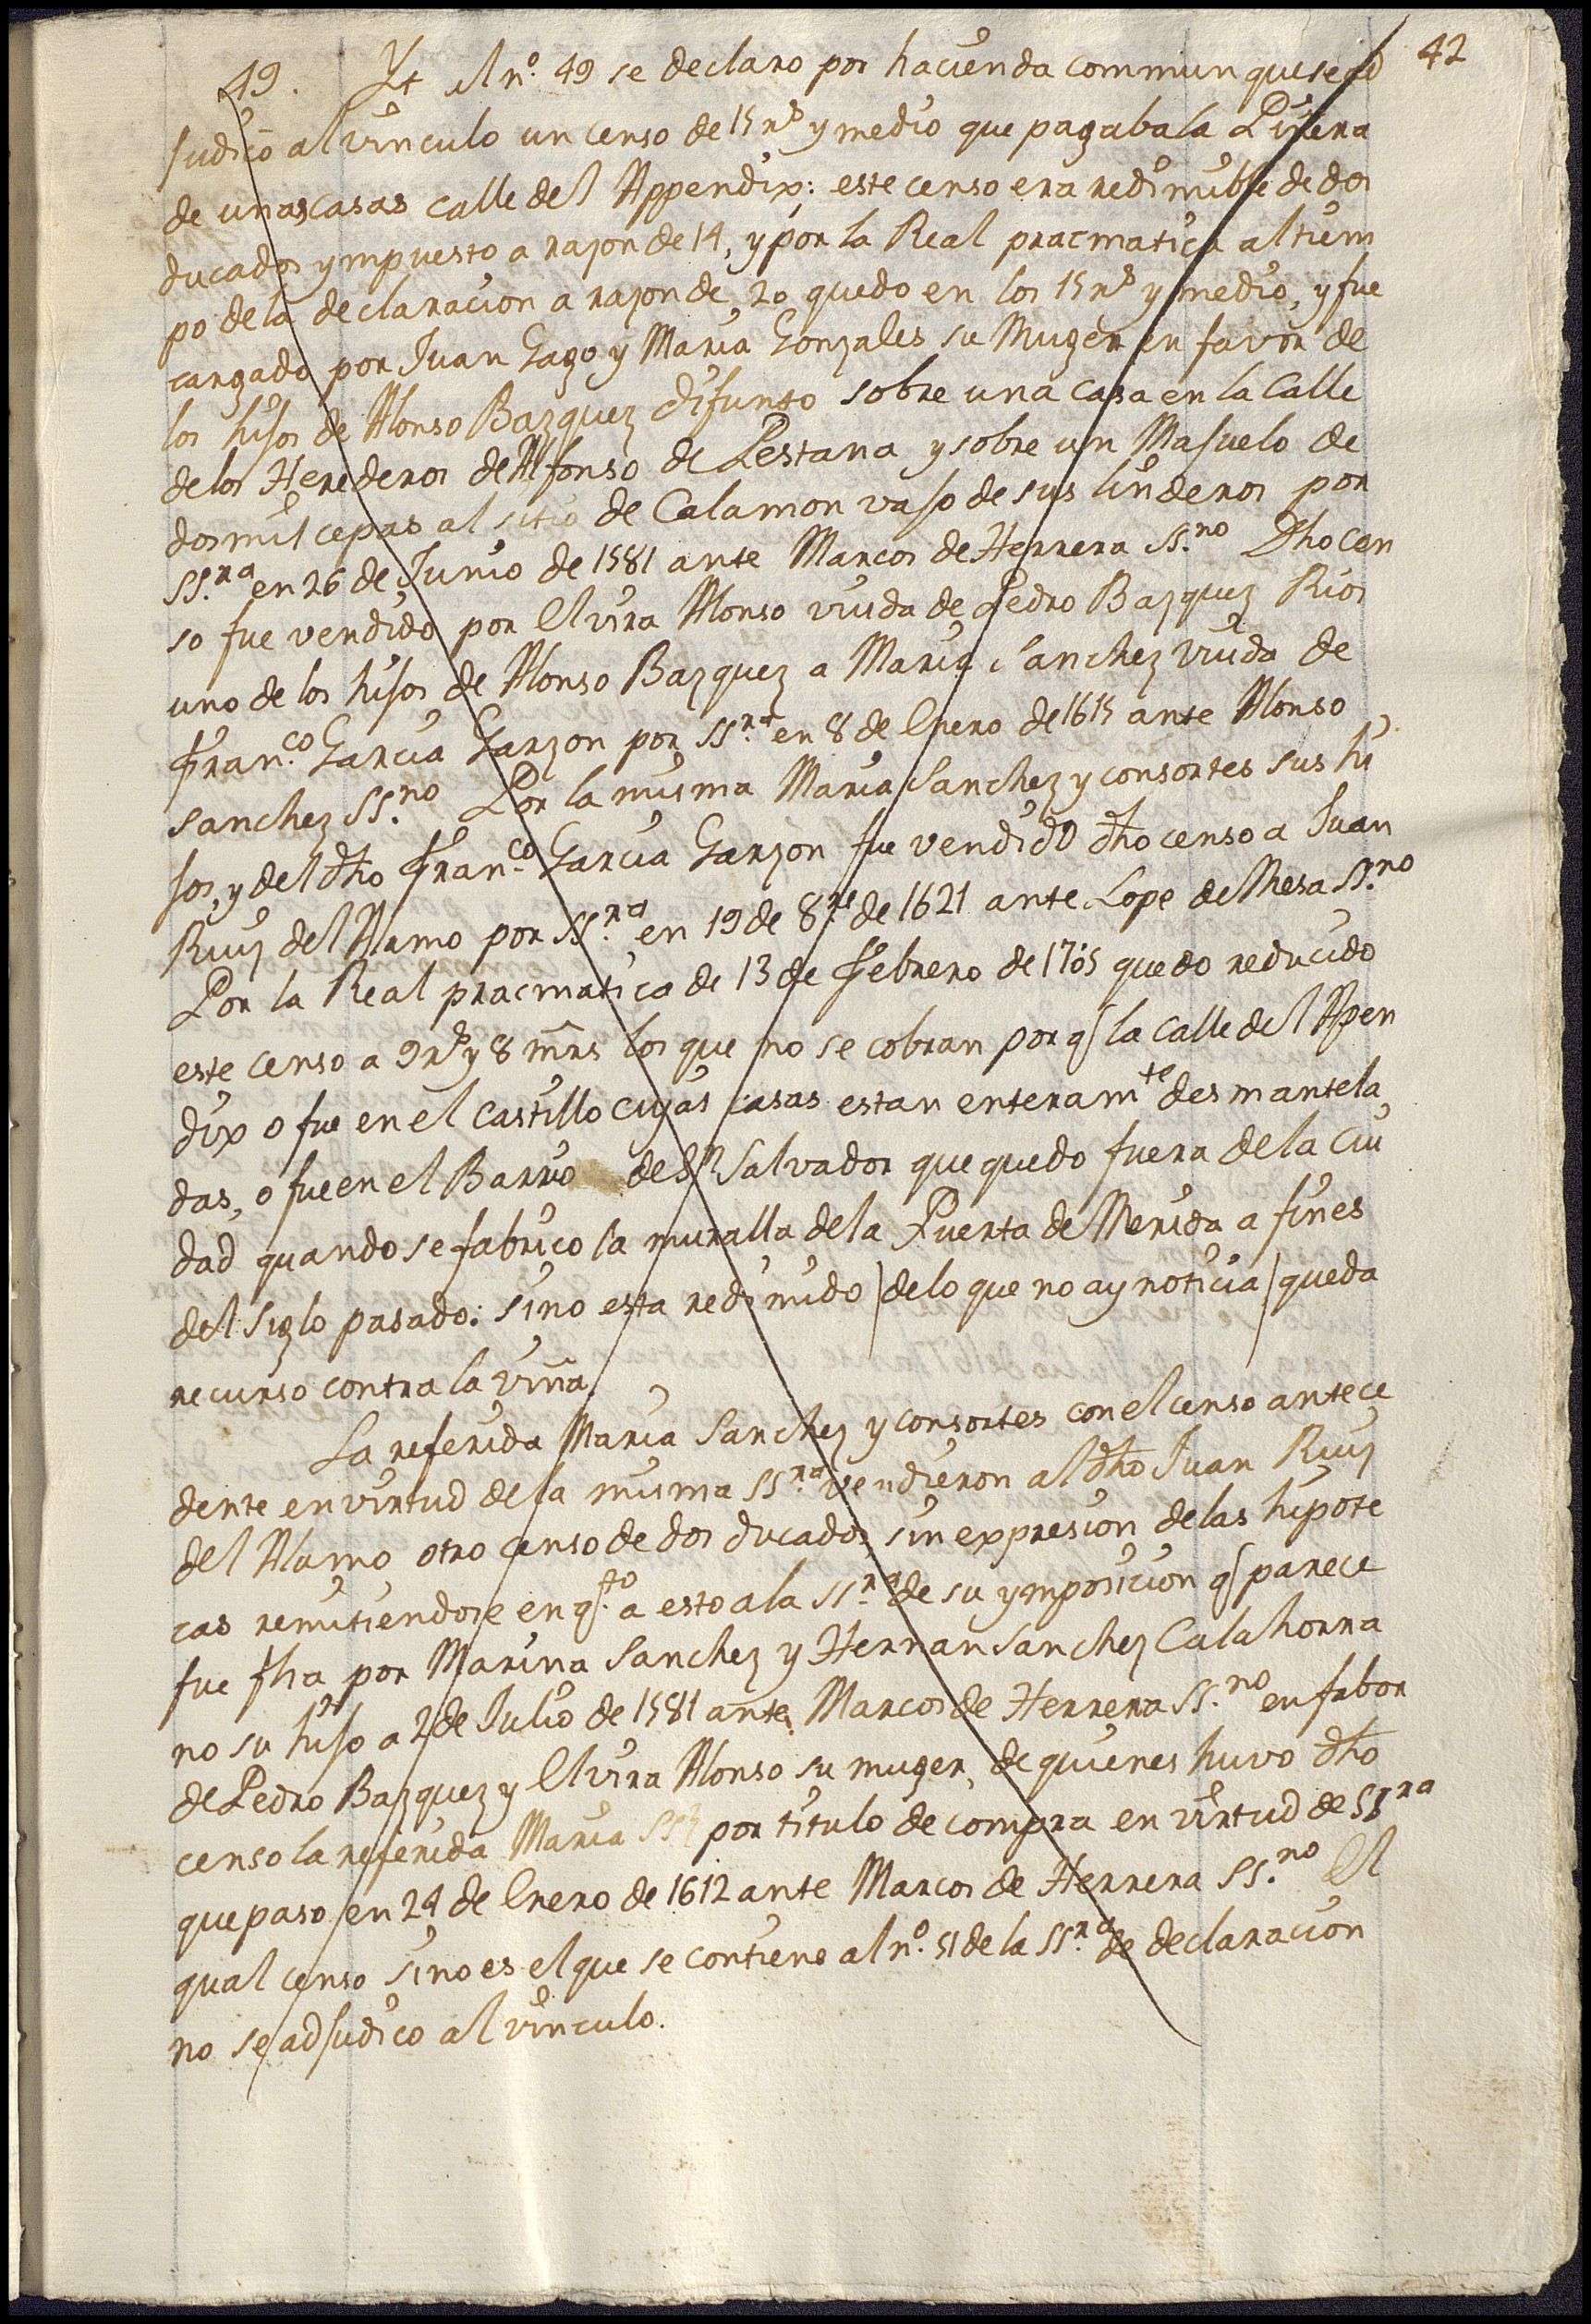 42
49. Yt el nº. 49 se declaro por hacienda commun que se ad
judico al vinculo un censo de 15 rs y medio que pagaba la Piñera
de unas casas calle del Appendix: este censo era redimible de dos
ducados ympuesto a razon de 14, y por la Real pracmatica al tiem
po de la declaracion a razon de 20 quedo en los 15 rs y medio, y fue
cargado por Juan Gago y Maria Gonzales su Muger en favor de
los hijos de Alonso Bazquez difunto sobre una casa en la Calle
de los Herederos de Alfonso de Pestana y sobre un Majuelo de
dos mil cepas al sitio de Calamon vajo de sus linderos por
SS.ra en 26 de Junio de 1581 ante Marcos de Herrera SS.no Dho cen
so fue vendido por Elvira Alonso viuda de Pedro Bazquez Rios
uno de los hijos de Alonso Bazquez a Maria Sanchez viuda de
Fran.co Garcia Garzon por SS.ra en 8 de Enero de 1615 ante Alonso
Sanchez SS.no Por la misma Maria Sanchez y consortes sus hi
jos, y del dho Fran.co Garcia Garzon fue vendido dho censo a Juan
Ruiz del Alamo por SS.ra en 19 de 8.re de 1621 ante Lope de Mesa SS.no
Por la Real pracmatica de 13 de Febrero de 1705 quedo reducido
este censo a 9 rs y 8 mrs los que no se cobran por q la calle del Apen
dix o fue en el castillo cuyas casas estan enteramte desmantela
das, o fue en el Barrio de Sn Salvador que quedo fuera de la ciu
dad quando se fabrico la muralla de la Puerta de Merida a fines
del siglo pasado: sino esta redimido (de lo que no ay noticia) queda
recurso contra la viña.
La referida Maria Sanchez y consortes con el censo antece
dente en virtud de la misma SS.ra vendieron al dho Juan Ruiz
del Alamo otro censo de dos ducados sin expresion de las hipote
cas remitiendose en q.to a esto a la SS.ra de su ymposicion q parece
fue fha por Marina Sanchez y Hernan Sanchez Calahorra
no su hijo a 2 de Julio de 1581 ante Marcos de Herrera SS.no en fabor
de Pedro Bazquez y Elvira Alonso su muger, de quienes huvo dho
censo la referida Maria por titulo de compra en virtud de SS.ra
que paso en 24 de Enero de 1612 ante Marcos de Herrera SS.no El
qual censo sino es el que se contiene al nº. 51 de la SS.ra de declaracion
no se adjudico al vinculo.